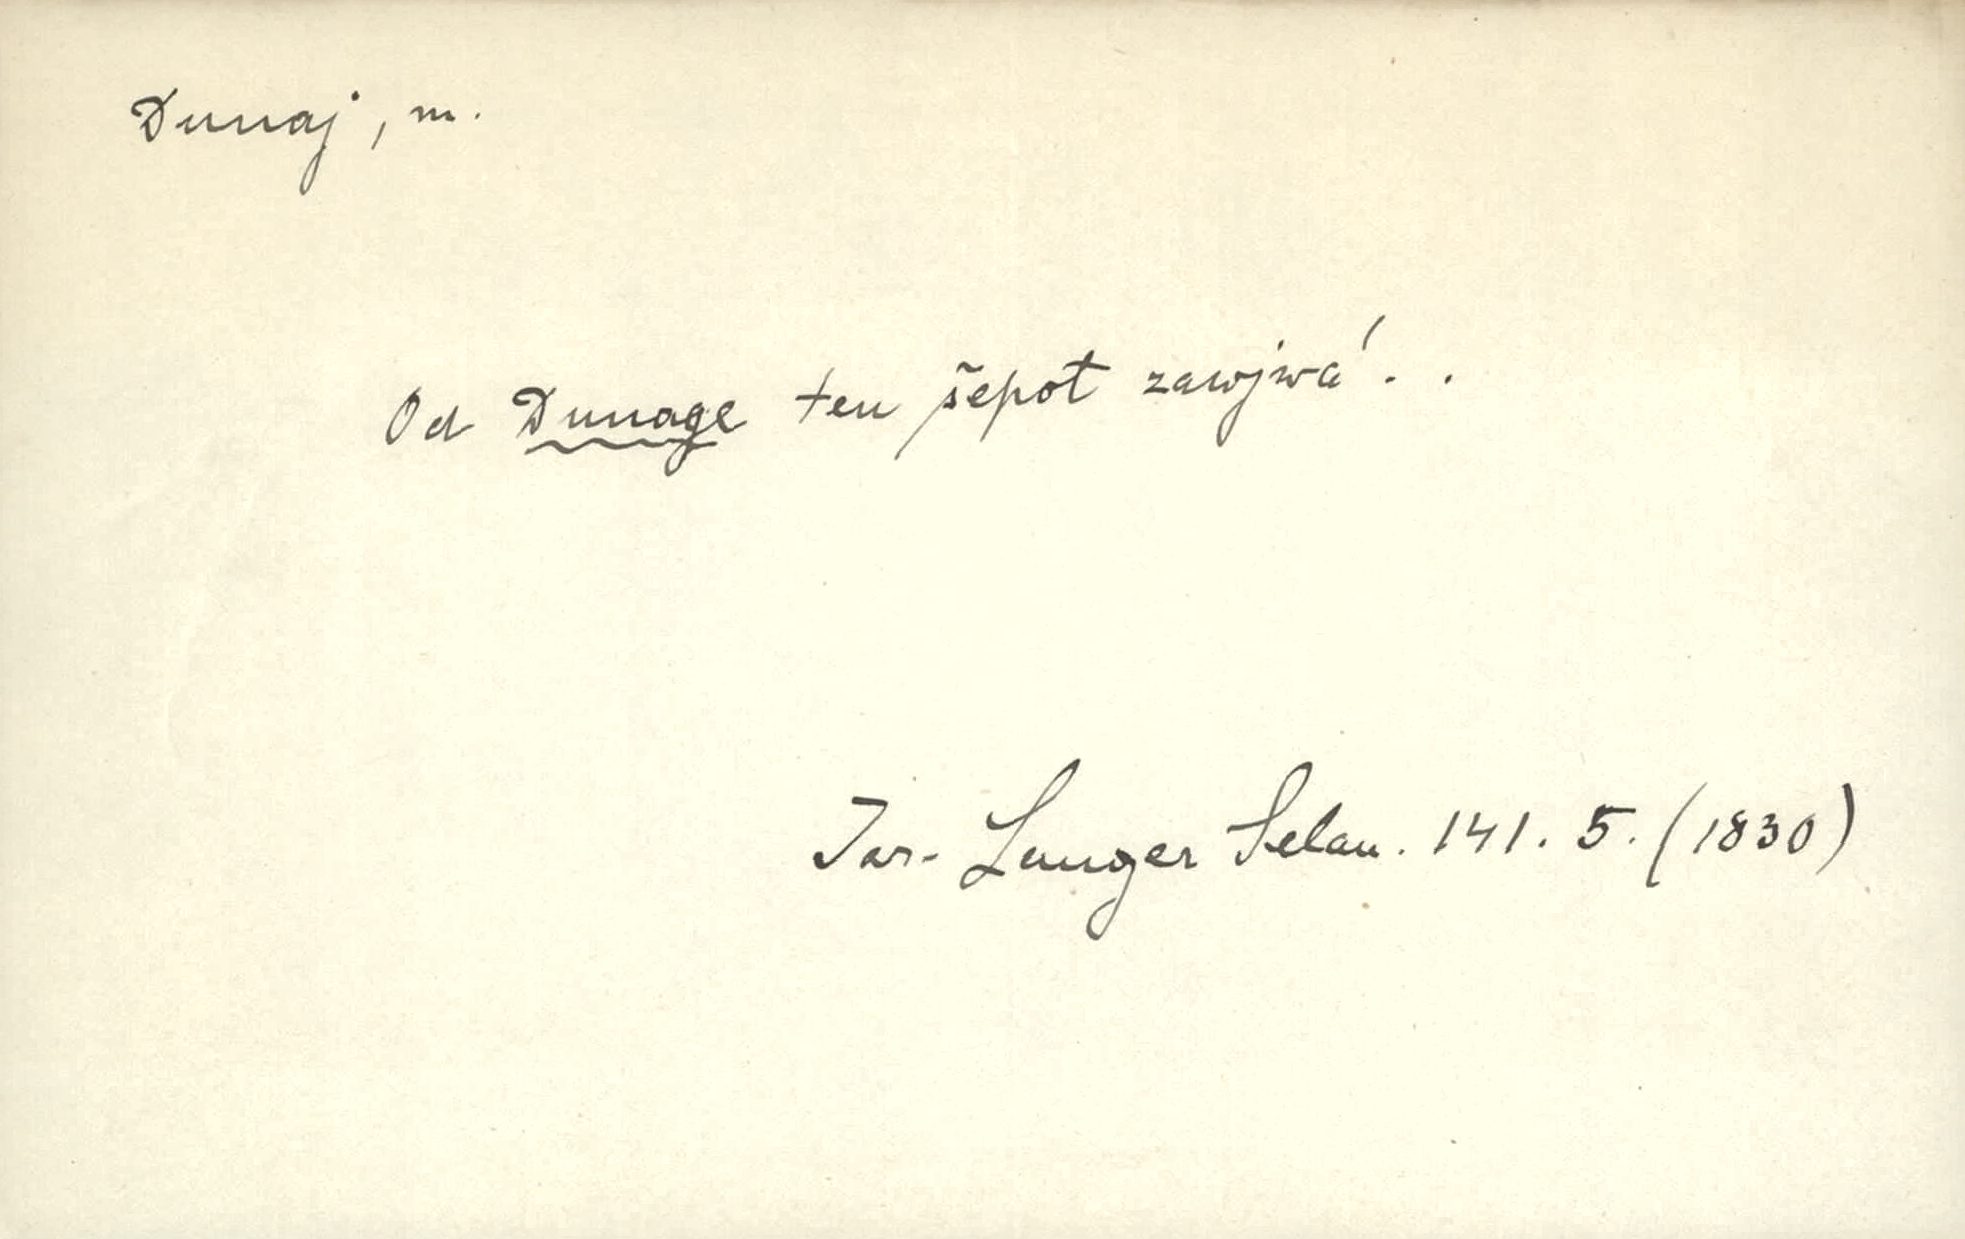 Dunaj, m.
Od Dunage ten šepot zawjwá. .
Jar. Langer Selan. 141. 5. (1830)